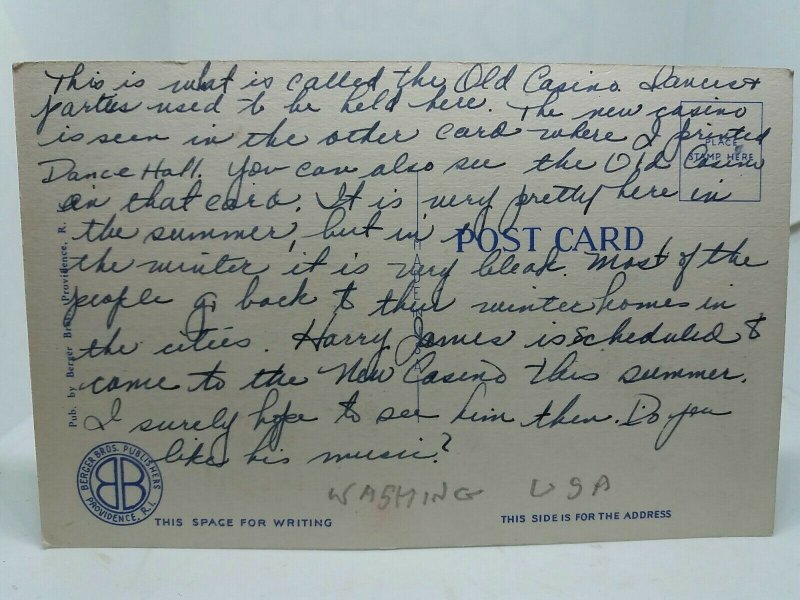 This is what is called the Old Casino. Dances +
parties used to be held here. The new casino
is seen in the other card where I printed
Dance Hall. You can also see the Old Casino
on that card. It is very pretty here in
the summer, but in
the winter it is very bleak. Most of the
people go back to their winter homes in
the cities. Harry James is scheduled to
come to the New Casino this summer.
I surely hope to see him then. Do you
like his music?
PLACE
STAMP HERE
POST CARD
Pub. by Berger Bros., Providence, R. I.
BERGER BROS. PUBLISHERS
BB
PROVIDENCE, R.I.
WASHING USA
THIS SPACE FOR WRITING
THIS SIDE IS FOR THE ADDRESS